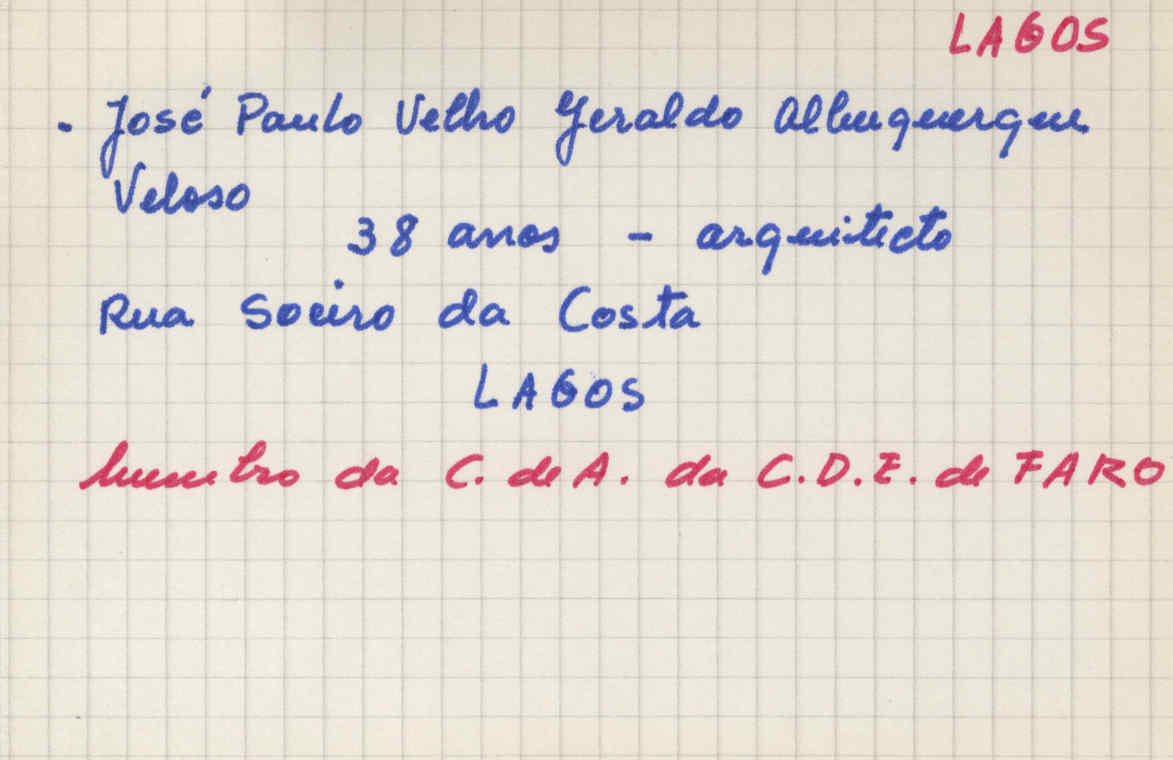 LAGOS
. José Paulo Velho Geraldo Albuquerque
Veloso
38 anos - arquitecto
Rua Soeiro da Costa
LAGOS
Membro da C. de A. da C.D.E. de FARO